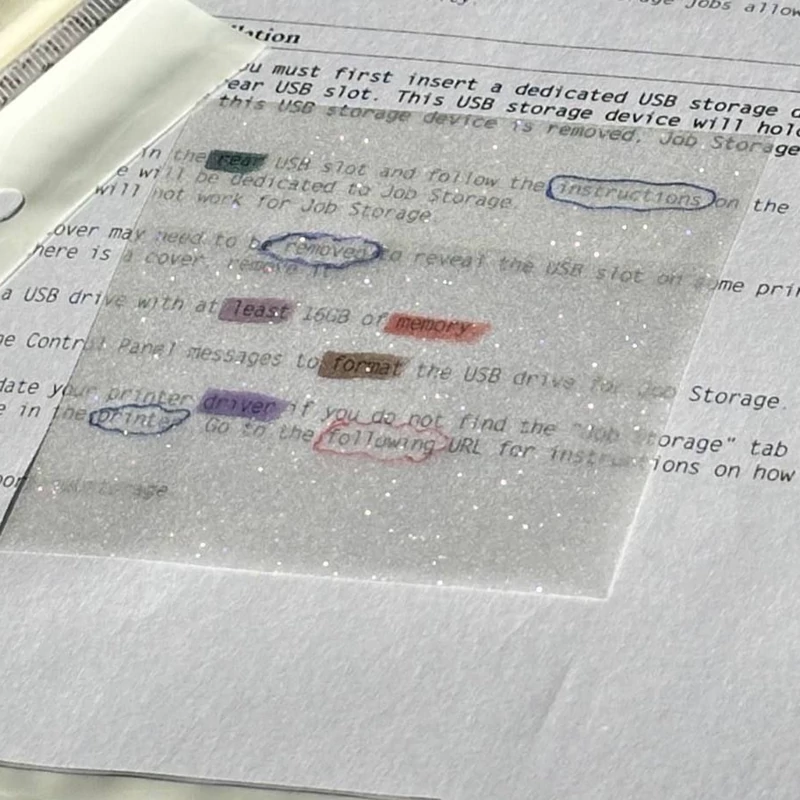 Jobs allow
lation
ou must first insert a dedicated USB storage d
ear USB slot. This USB storage device will hold
this USB storage device is removed, Job Storage
in the rear USB slot and follow the instructions on the
e will be dedicated to Job Storage.
will not work for Job Storage.
over may need to be removed to reveal the USB slot on some prin
here is a cover, remove it
a USB drive with at least 16GB of memory.
he Control Panel messages to format the USB drive for Job Storage.
date your printer driver if you do not find the "Job Storage" tab
e in the printer. Go to the following URL for instructions on how